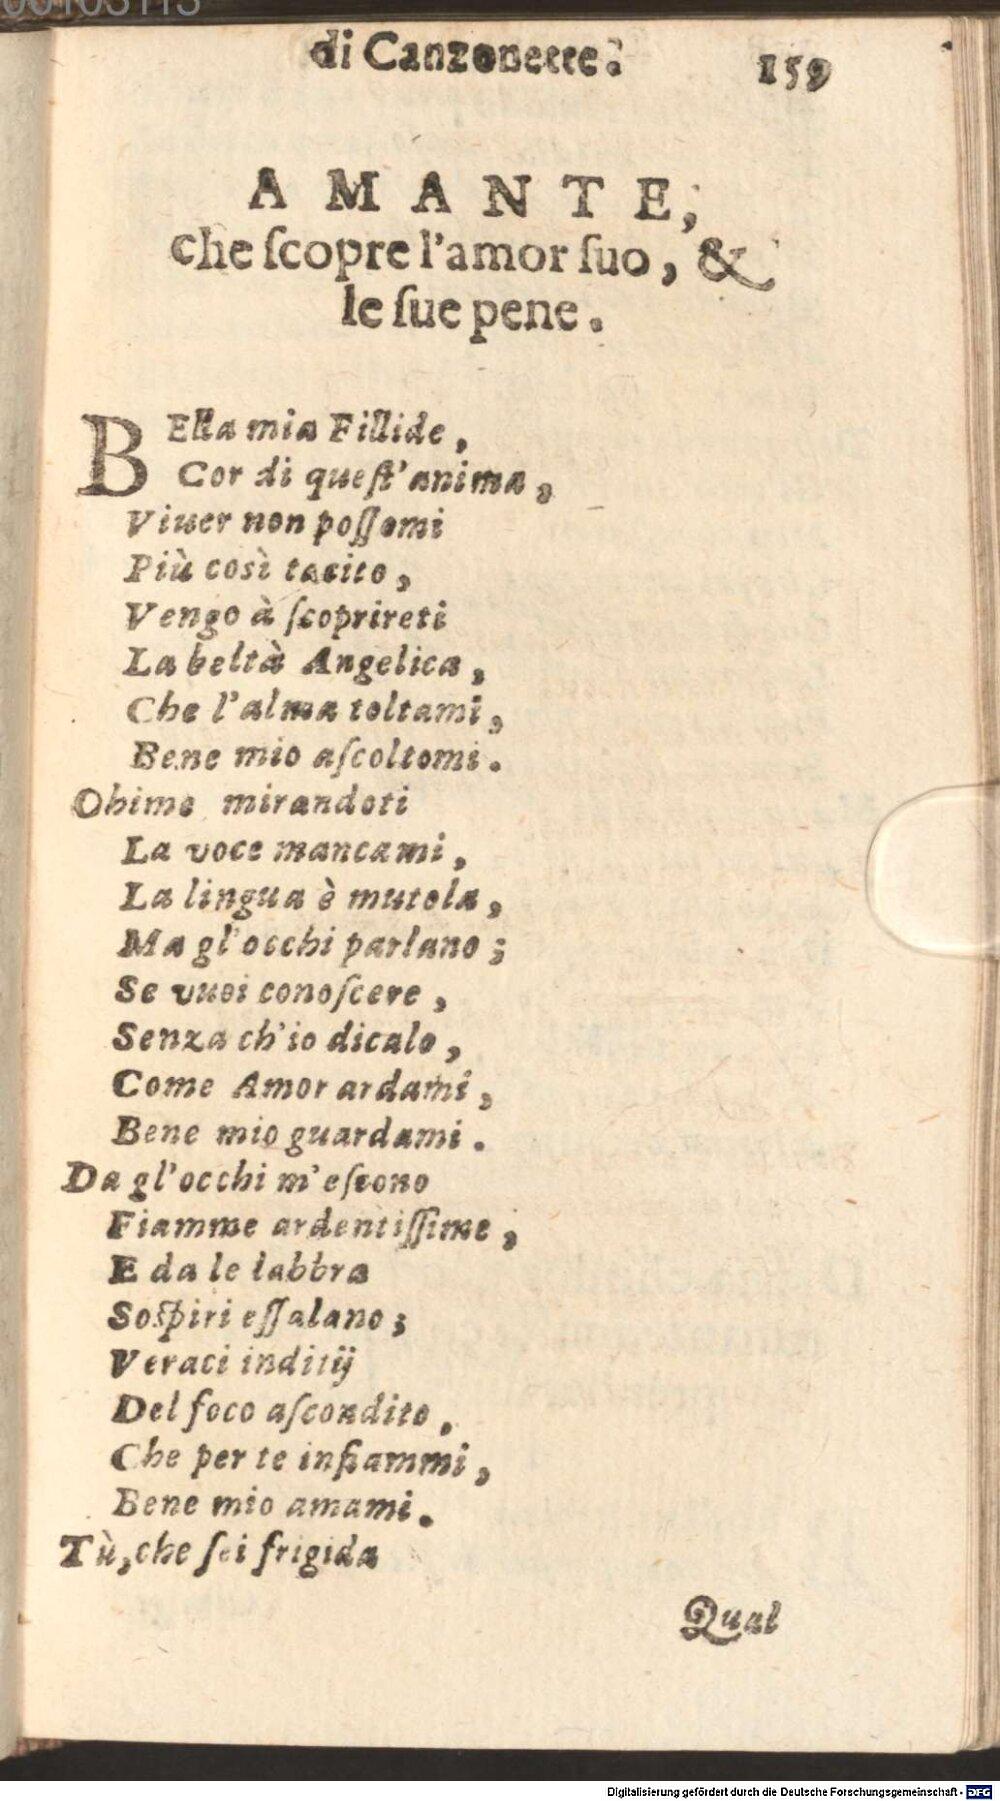 00103113
di Canzonette. 159
AMANTE,
che ſcopre l'amor ſuo, &
le ſue pene.
BElla mia Fillide,
Cor di queſt'anima,
Viuer non poſſomi
Più così tacito,
Vengo à ſcoprireti
La beltà Angelica,
Che l'alma toltami,
Bene mio aſcoltomi.
Ohime mirandoti
La voce mancami,
La lingua è mutola,
Ma gl'occhi parlano;
Se vuoi conoſcere,
Senza ch'io dicalo,
Come Amor ardami,
Bene mio guardami.
Da gl'occhi m'eſcono
Fiamme ardentiſſime,
E da le labbra
Soſpiri eſſalano;
Veraci inditij
Del foco aſcondito,
Che per te infiammi,
Bene mio amami.
Tù, che ſei frigida
Qual
Digitalisierung gefördert durch die Deutsche Forschungsgemeinschaft - DFG